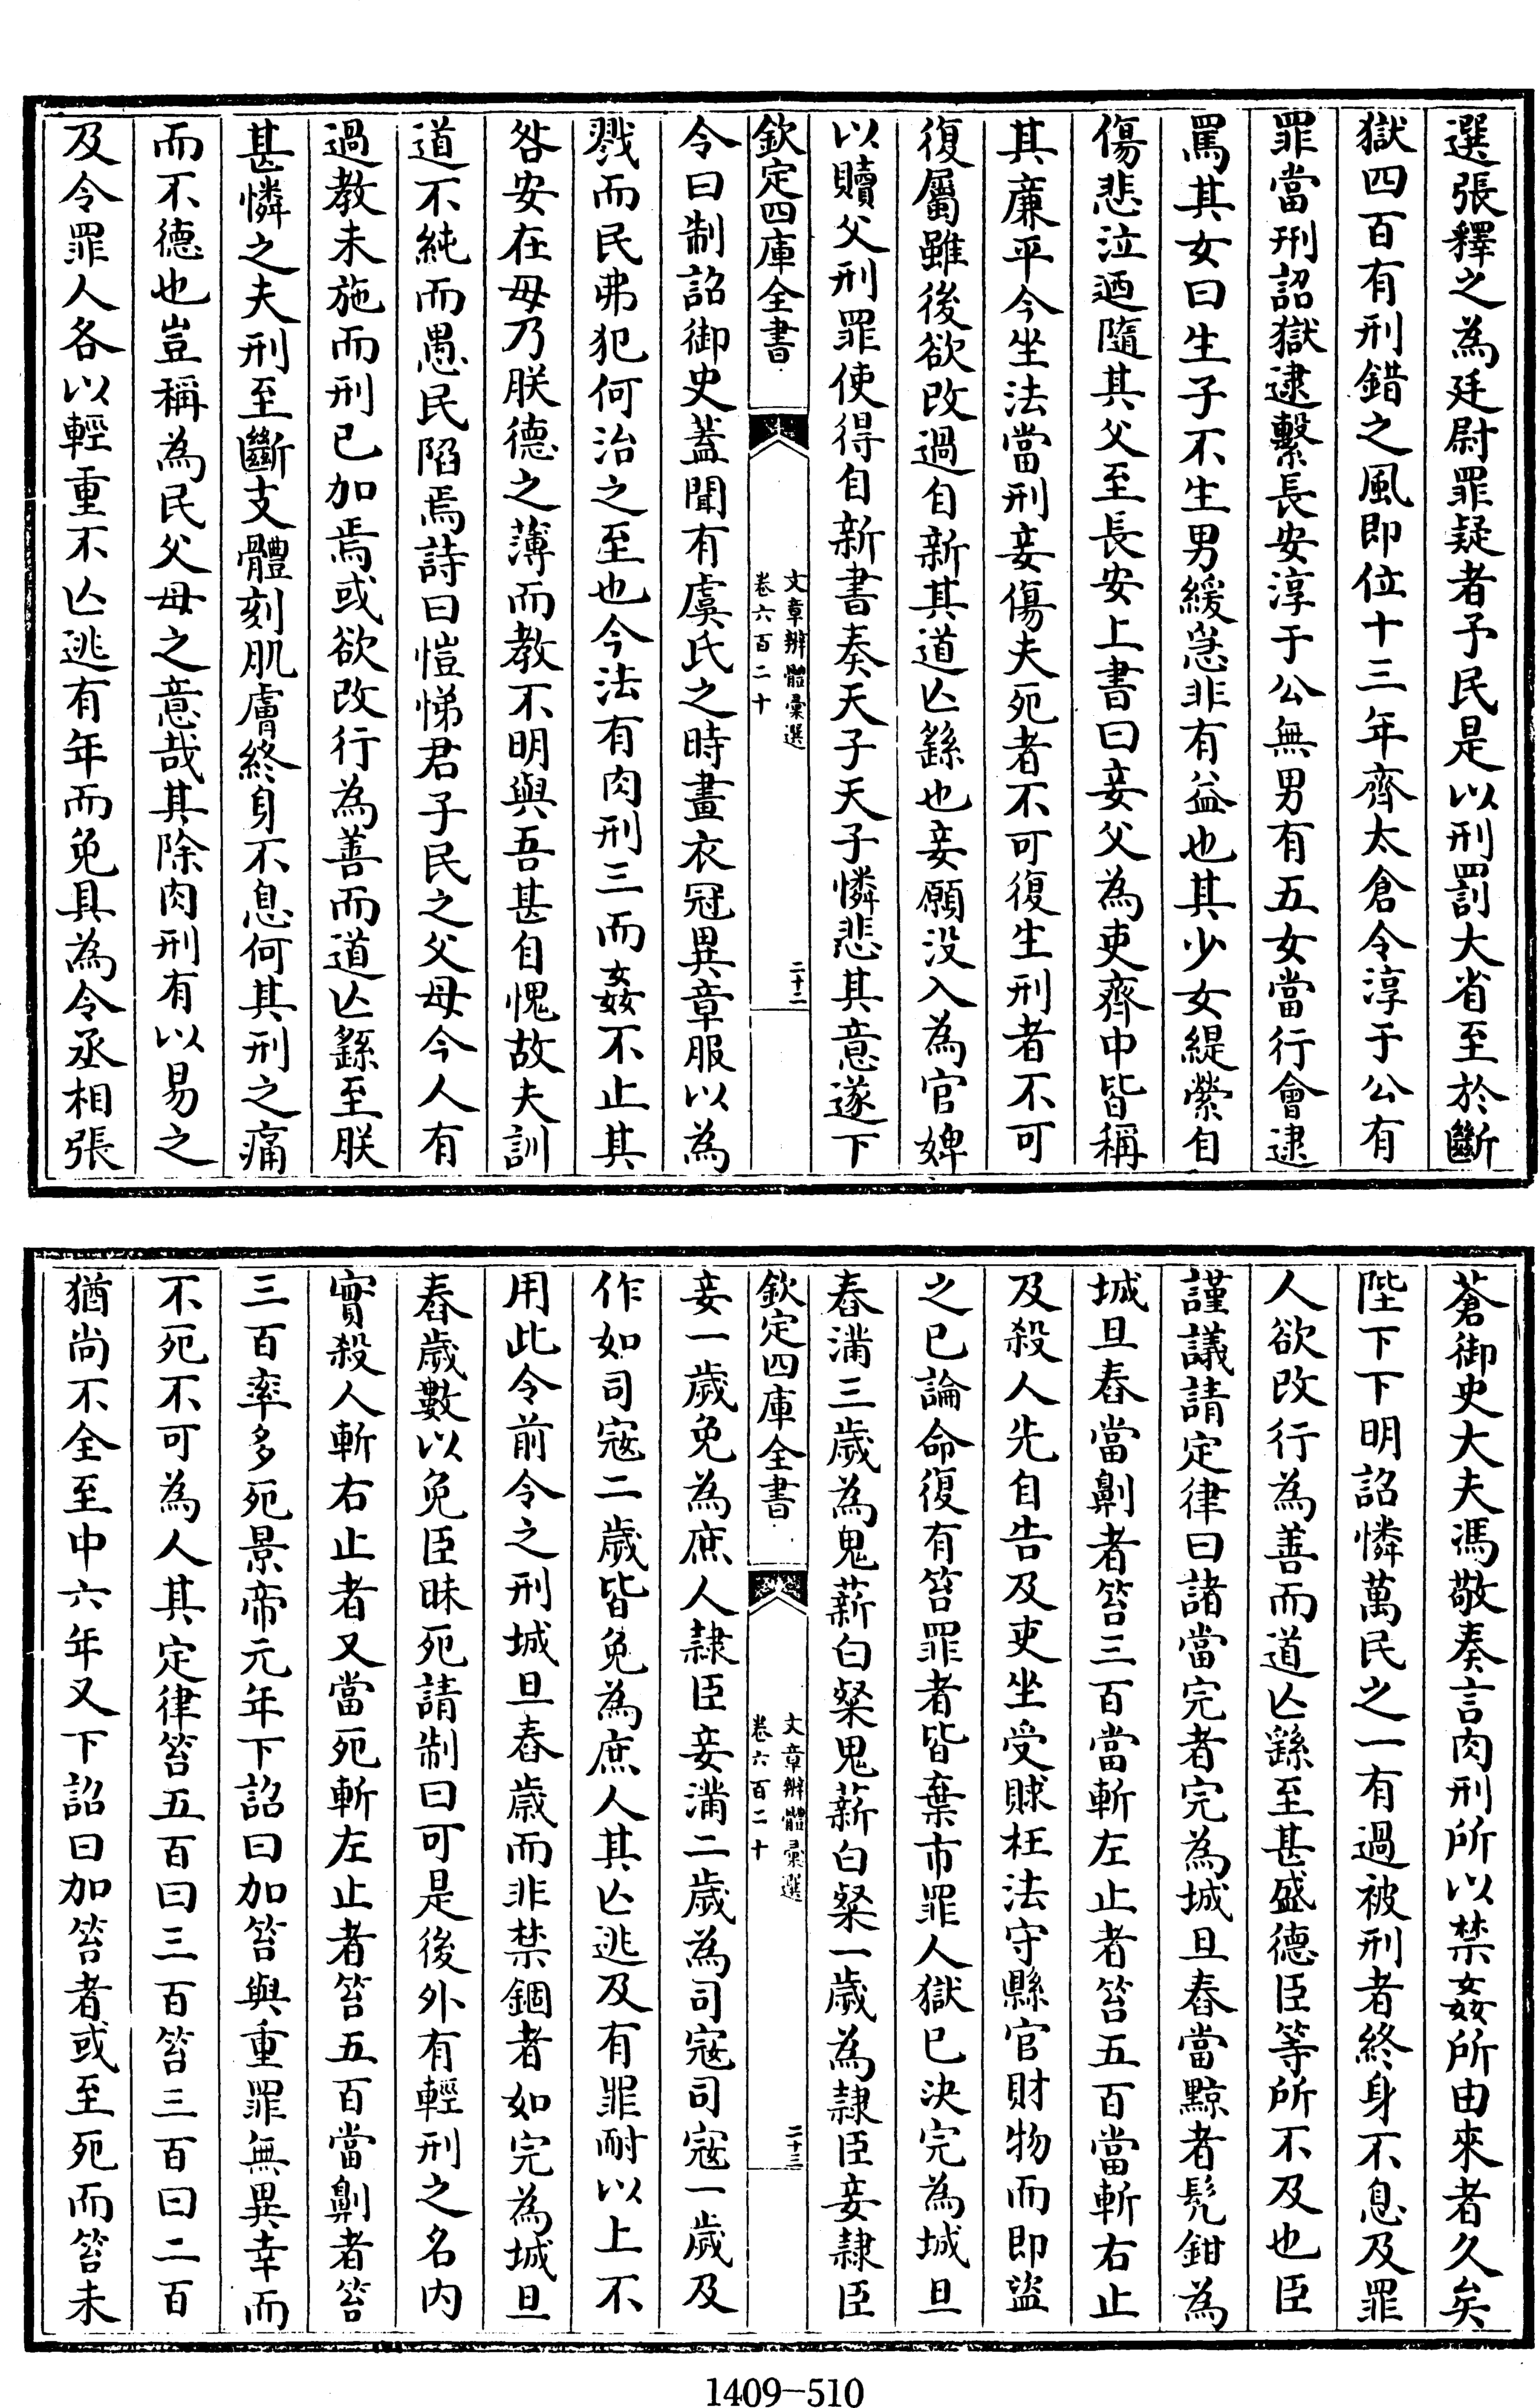 選張釋之為廷尉罪疑者予民是以刑罰大省至於斷
獄四百有刑錯之風即位十三年齊太倉令淳于公有
罪當刑詔獄逮繫長安淳于公無男有五女當行會逮
罵其女曰生子不生男緩急非有益也其少女緹縈自
傷悲泣迺隨其父至長安上書曰妾父為吏齊中皆稱
其廉平今坐法當刑妾傷夫死者不可復生刑者不可
復屬雖後欲改過自新其道亡繇也妾願没入為官婢
以贖父刑罪使得自新書奏天子天子憐悲其意遂下
欽定四庫全書
文章辨體彙選
卷六百二十
二十二
令曰制詔御史蓋聞有虞氏之時畫衣冠異章服以為
戮而民弗犯何治之至也今法有肉刑三而姦不止其
咎安在毋乃朕德之薄而教不明與吾甚自愧故夫訓
道不純而愚民陷焉詩曰愷悌君子民之父母今人有
過教未施而刑已加焉或欲改行為善而道亡繇至朕
甚憐之夫刑至斷支體刻肌膚終身不息何其刑之痛
而不德也豈稱為民父母之意哉其除肉刑有以易之
及令罪人各以輕重不亡逃有年而免具為令丞相張
蒼御史大夫馮敬奏言肉刑所以禁姦所由來者久矣
陛下下明詔憐萬民之一有過被刑者終身不息及罪
人欲改行為善而道亡繇至甚盛德臣等所不及也臣
謹議請定律曰諸當完者完為城旦舂當黥者髡鉗為
城旦舂當劓者笞三百當斬左止者笞五百當斬右止
及殺人先自告及吏坐受賕枉法守縣官財物而即盜
之已論命復有笞罪者皆棄市罪人獄已決完為城旦
舂滿三歲為鬼薪白粲鬼薪白粲一歲為隷臣妾隷臣
欽定四庫全書
文章辨體彙選
卷六百二十
二十三
妾一歲免為庶人隷臣妾滿二歲為司寇司寇一歲及
作如司寇二歲皆免為庶人其亡逃及有罪耐以上不
用此令前令之刑城旦舂歲而非禁錮者如完為城旦
舂歲數以免臣昧死請制曰可是後外有輕刑之名内
實殺人斬右止者又當死斬左止者笞五百當劓者笞
三百率多死景帝元年下詔曰加笞與重罪無異幸而
不死不可為人其定律笞五百曰三百笞三百曰二百
猶尚不全至中六年又下詔曰加笞者或至死而笞未
1409-510